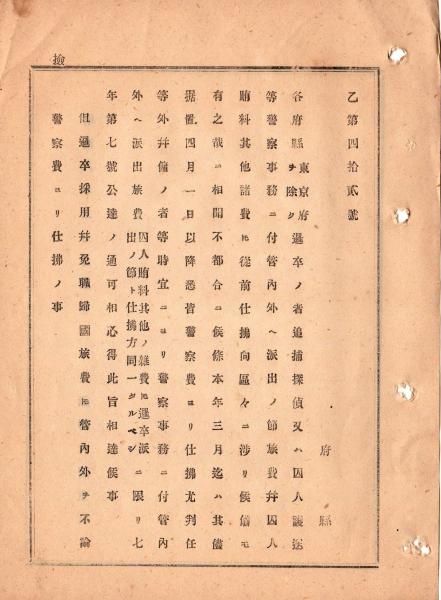 乙第四拾貳號
府縣
各府縣東京府ヲ除ク邏卒ノ者追捕探偵又ハ囚人護送
等警察事務ニ付管內外ヘ派出ノ節旅費幷囚人
賄料其他諸費ヒ從前仕拂向區々ニ涉リ候儀モ
有之哉ニ相聞不都合ニ候條本年三月迄ハ其儘
据置四月一日以降悉皆警察費ヨリ仕拂尤判任
等外幷傭ノ者等時宜ニヨリ警察事務ニ付管內
外ヘ派出旅費囚人賄料其他ノ雜費ヒ邏卒派出ノ節ト仕拂方同一タルベシニ限リ七
年第七號公達ノ通可相心得此旨相達候事
但邏卒採用幷免職歸國旅費ヒ管內外ヲ不論
警察費ヨリ仕拂ノ事
撿